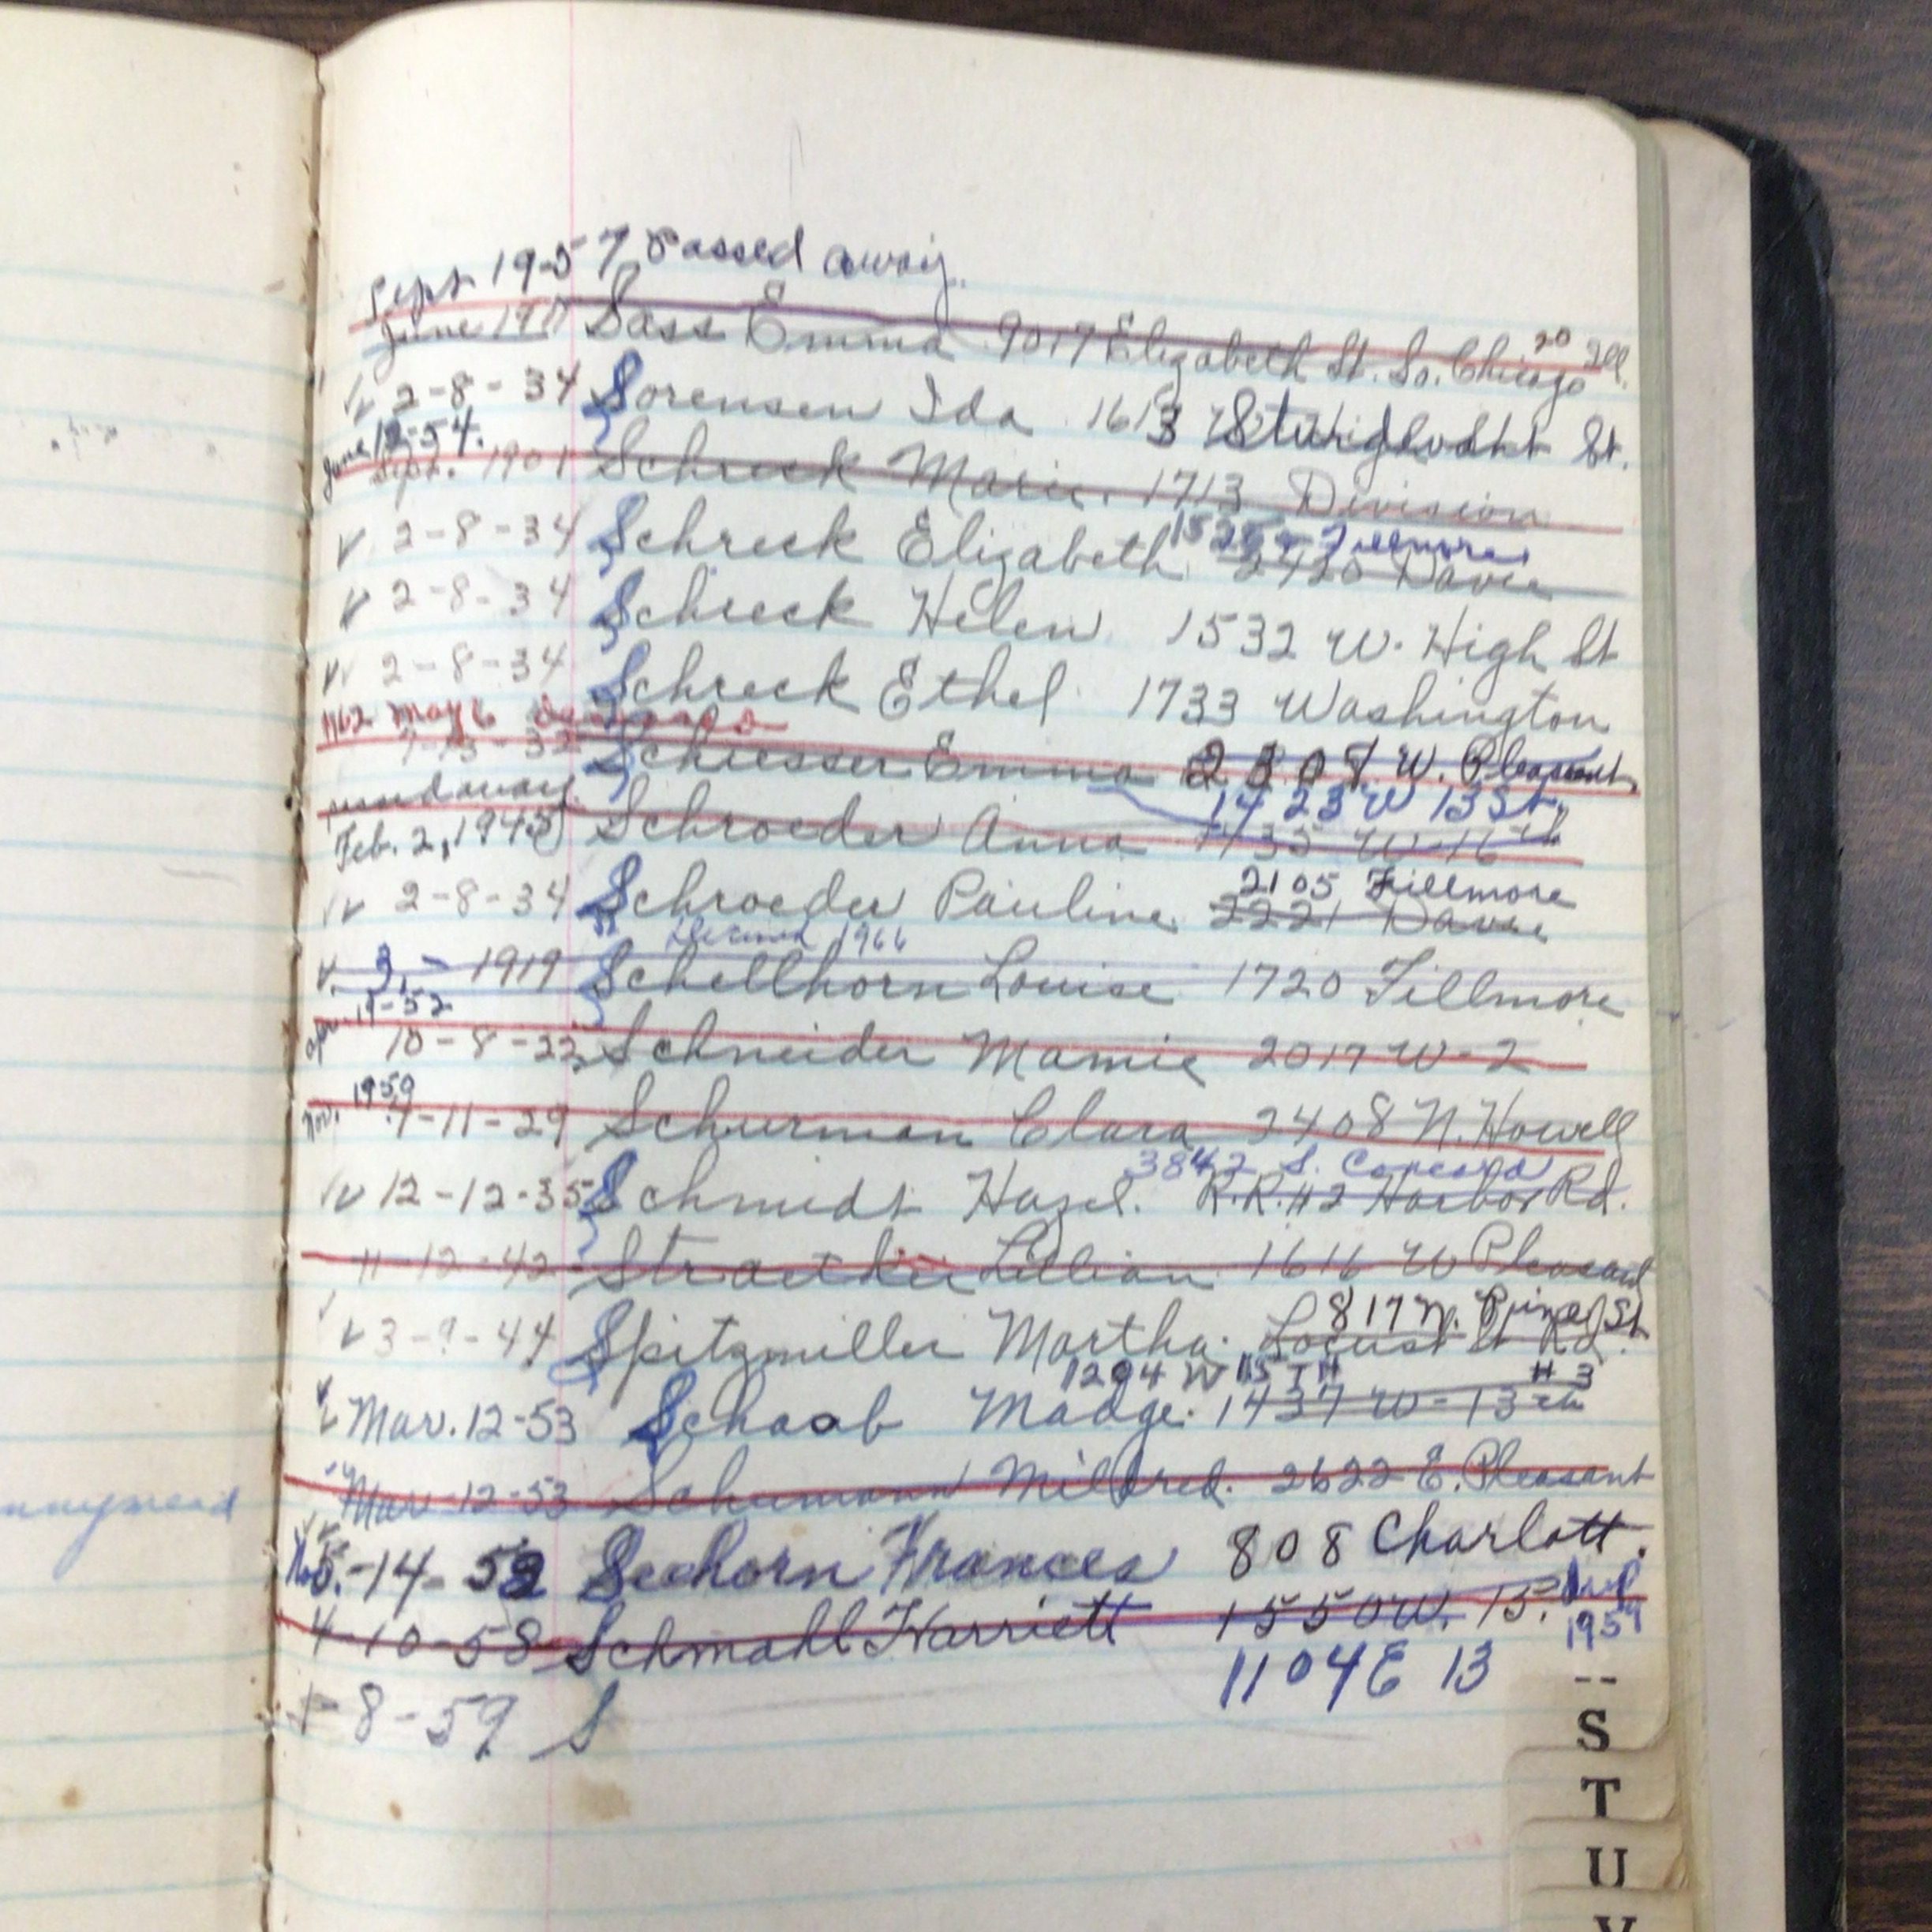 Sept 19-57 Passed away.
June 1911 Sass Emma 9017 Elizabeth St. So. Chicago 20 Ill.
2-8-34 Sorensen Ida 1613 St.
June 12-54.
Sept. 1901 Schreck Marie. 1713 Division
1525 Fillmore
v 2-8-34 Schreck Elizabeth 2420 Davie
v 2-8-34 Schreck Helen 1532 W. High St
v 2-8-34 Schreck Ethel 1733 Washington
1962 May 6
7-13-32 Schiesser Emma 2309 W. Pleasant
1423 W 13 St.
Feb. 2, 1945 Schroeder Anna 1435 W-16th
2105 Fillmore
v 2-8-34 Schroeder Pauline 2221 Davie
Deceased 1966
v. 3, - 1919 Schellhorn Louise 1720 Fillmore
Apr. 19-52
10-8-22 Schneider Mamie 2017 W-2
Nov. 1959
4-11-29 Schurman Clara 2408 N. Howell
3842 S. Concord
v 12-12-35 Schmidt Hazel. R.R. #2 Harbor Rd.
11-12-42 Straecker Lillian 1616 W Pleasant
817 N. Pine St
v 3-9-44 Spitzmiller Martha. Locust St Rd.
1204 W 15TH #3
Mar. 12-53 Schaab Madge. 1437 W-13th
Mar-12-53 Schumann Mildred. 2622 E. Pleasant
5-14-52 Seehorn Frances 808 Charlott.
4-10-58 Schmahl Harriett 1550 W. 13.
1959
1104 E 13
1-8-59 S
nnymeid
S
T
U
V